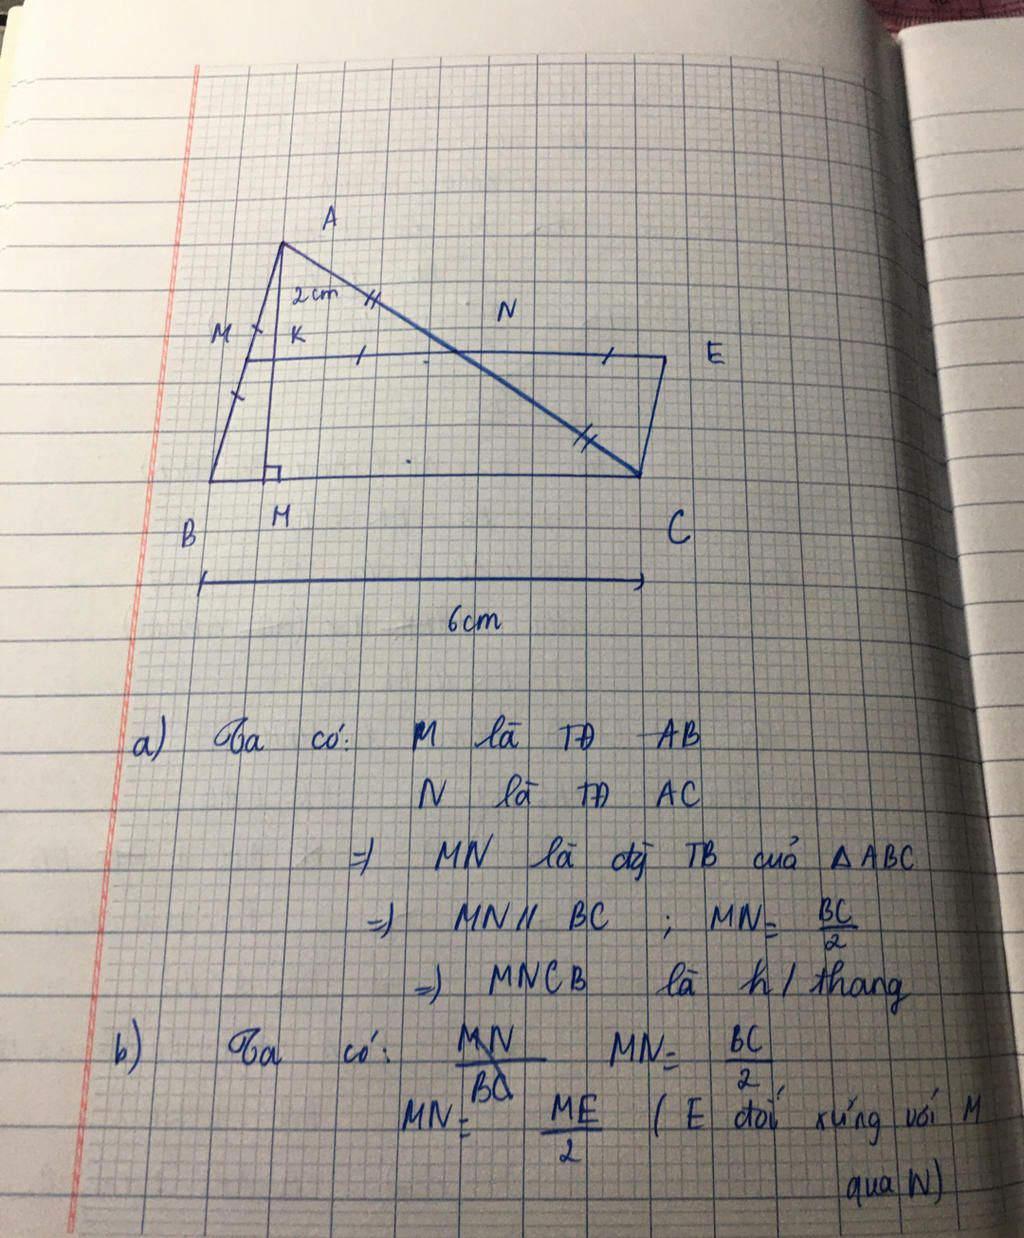 A
2cm
N
M
K
E
H
B
C
6cm
a) Ta có: M là TĐ AB
N là TĐ AC
=) MN là đg TB cuả Δ ABC
=) MN // BC ; MN = BC/2
=) MNCB là h/thang
b) Ta có: MN/BC MN = BC/2
MN = ME/2 ( E đối xứng với M
qua N)